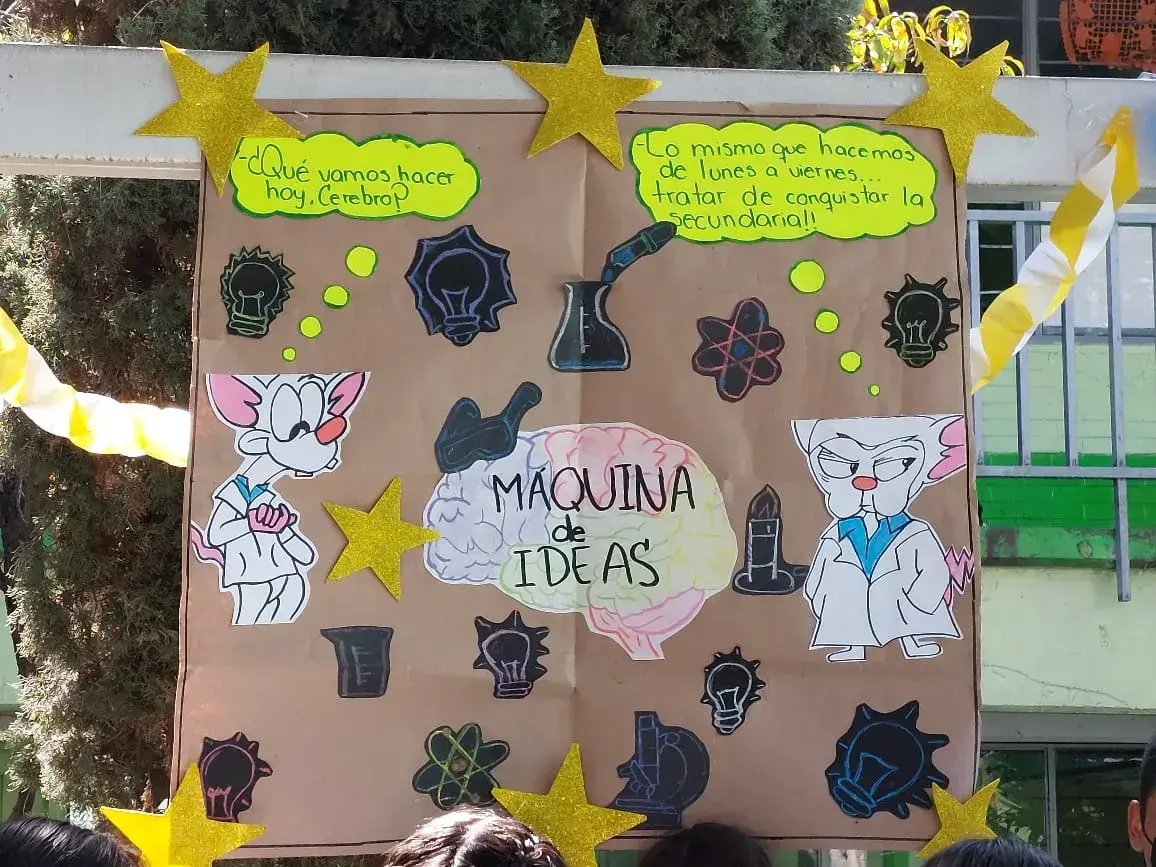 -¿Qué vamos hacer
hoy, Cerebro?
-Lo mismo que hacemos
de lunes a viernes...
tratar de conquistar la
secundaria!!
MÁQUINA
de
IDEAS